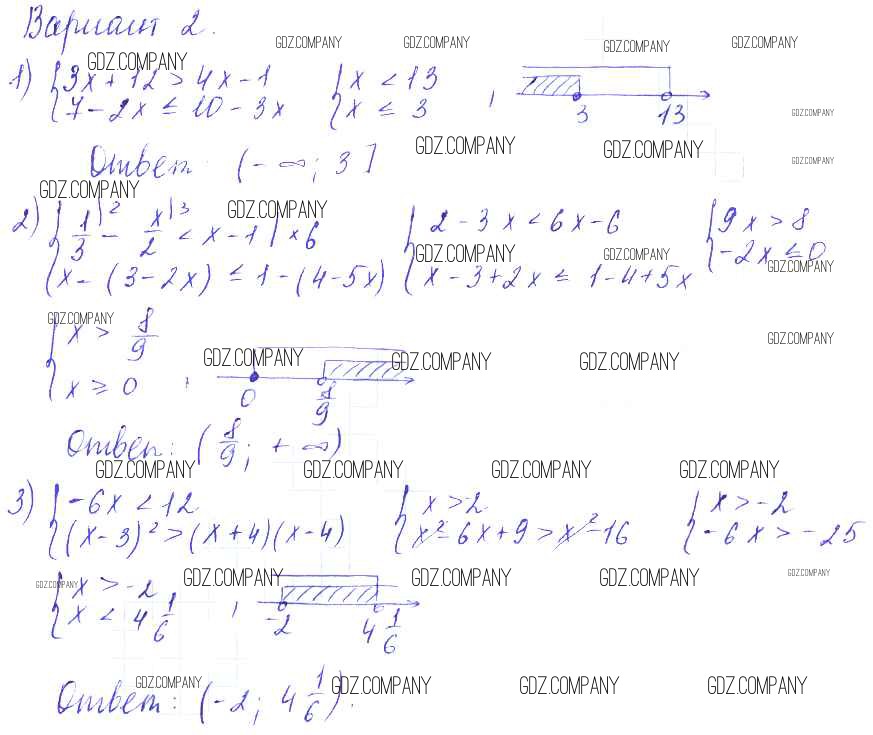 Вариант 2.
GDZ.COMPANY GDZ.COMPANY GDZ.COMPANY GDZ.COMPANY
GDZ.COMPANY
1) { 3x + 12 > 4x - 1 { x < 13
{ 7 - 2x ≤ 10 - 3x { x ≤ 3 ,
3 13
GDZ.COMPANY
GDZ.COMPANY GDZ.COMPANY
Ответ: (-∞; 3]
GDZ.COMPANY
GDZ.COMPANY
GDZ.COMPANY
2) { 1/3 |2 - x/2 |3 < x - 1 | ×6 { 2 - 3x < 6x - 6 { 9x > 8
{ x - (3 - 2x) ≤ 1 - (4 - 5x) { x - 3 + 2x ≤ 1 - 4 + 5x { -2x ≤ 0
GDZ.COMPANY GDZ.COMPANY GDZ.COMPANY
GDZ.COMPANY GDZ.COMPANY
{ x > 8/9
{ x ≥ 0 ,
GDZ.COMPANY GDZ.COMPANY GDZ.COMPANY
0 8/9
Ответ: (8/9; +∞)
GDZ.COMPANY GDZ.COMPANY GDZ.COMPANY GDZ.COMPANY
3) { -6x < 12 { x > -2 { x > -2
{ (x - 3)² > (x + 4)(x - 4) { x² - 6x + 9 > x² - 16 { -6x > -25
GDZ.COMPANY GDZ.COMPANY GDZ.COMPANY GDZ.COMPANY GDZ.COMPANY
{ x > -2
{ x < 4 1/6 ,
-2 4 1/6
GDZ.COMPANY GDZ.COMPANY GDZ.COMPANY GDZ.COMPANY
Ответ: (-2; 4 1/6).